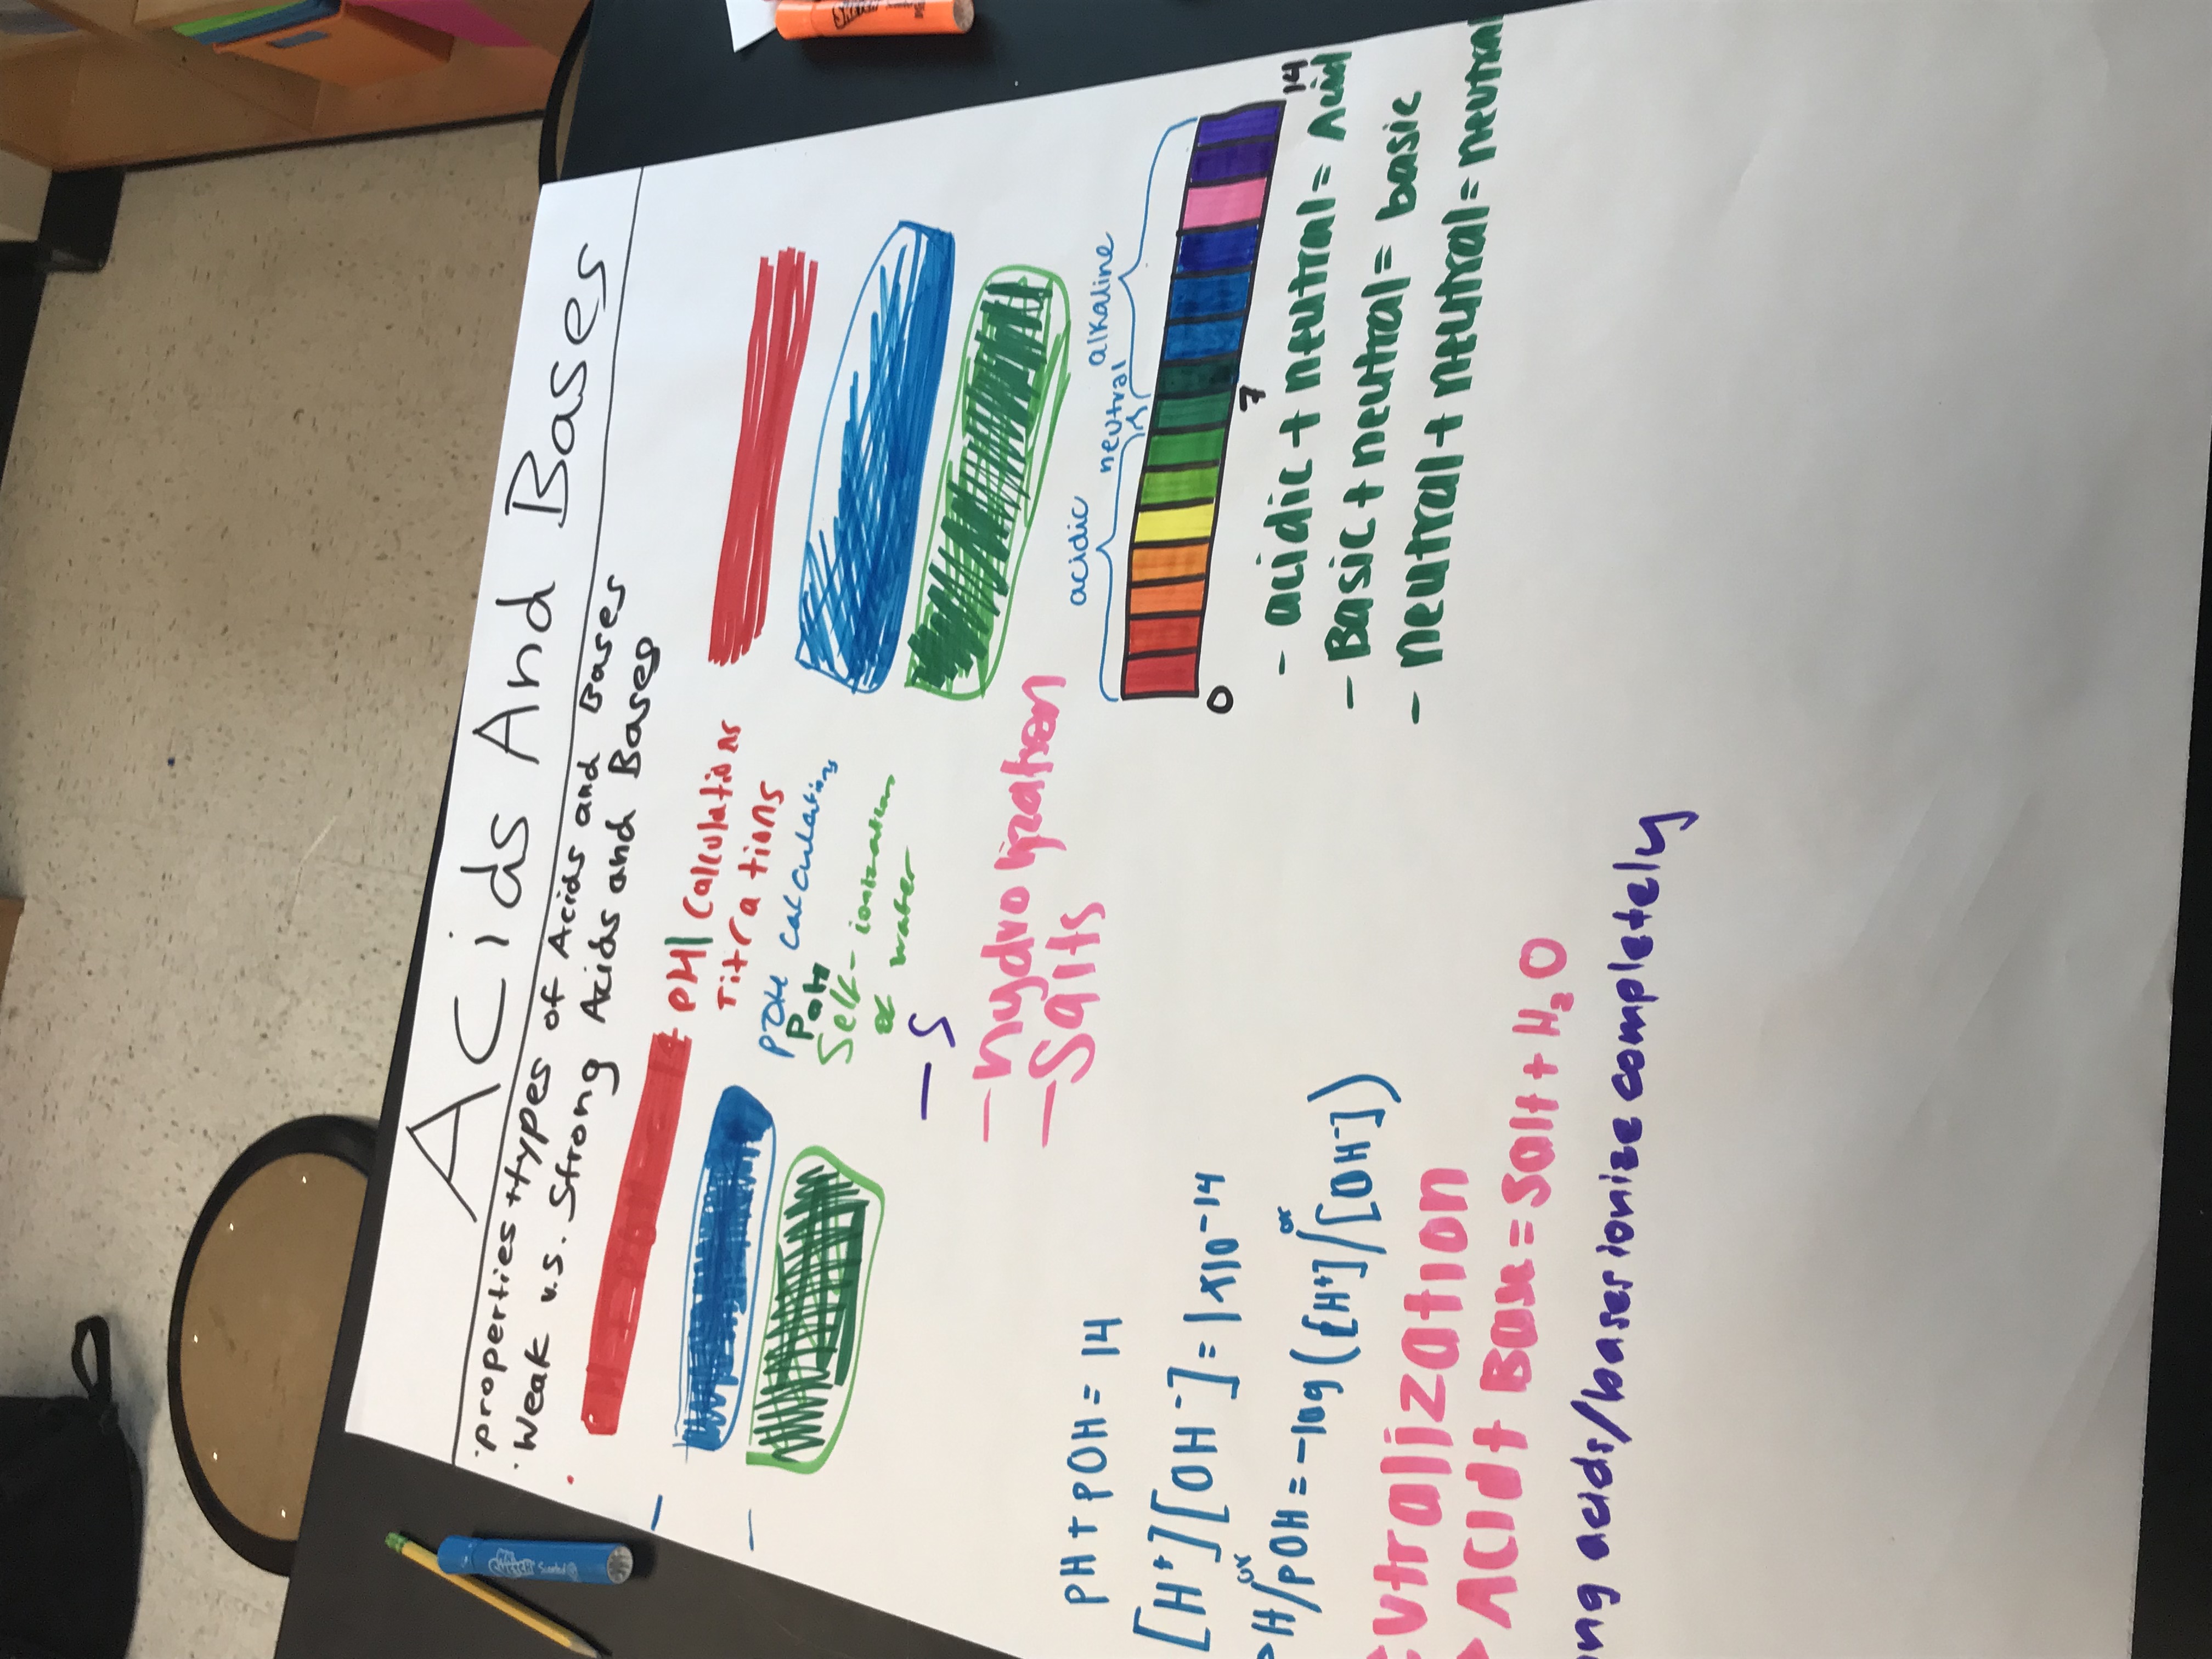 ACids And Bases
·properties + types of Acids and Bases
·Weak v.s. Strong Acids and Bases
Acids and Bases
PH Calculations
Titrations
POH calculations
POH
Self-ionization
of water
- S
- Salts
acidic neutral alkaline
0 7 14
- acidic + neutral = Acid
- Basic + neutral = basic
- neutral + neutral = neutral
PH + POH = 14
[H+][OH-] = 1x10-14
PH/POH = -log([H+]/[OH-])
or or
eutralization
> Acid + Base = Salt + H2O
ong acids/bases ionize completely
Sketch Scented
Mr. Sketch Scented